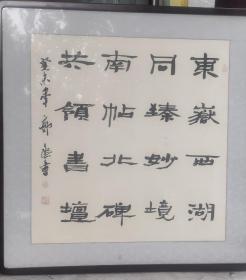 東嶽西湖
同臻妙境
南帖北碑
共領書壇
癸未年
書